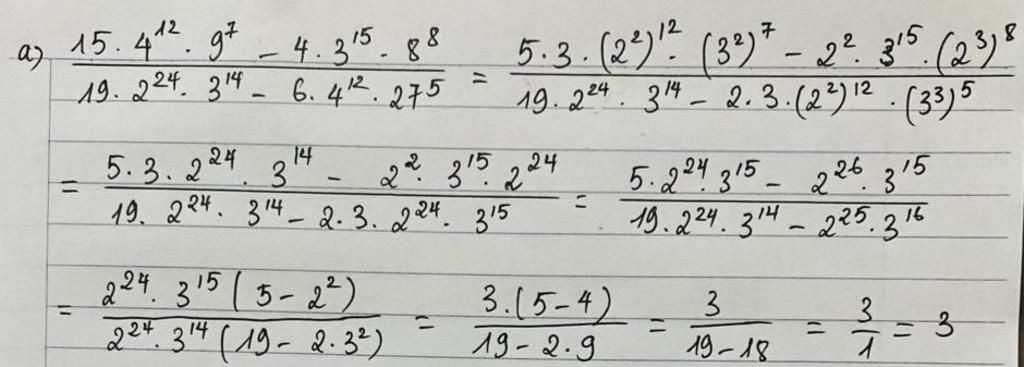 a) \frac{15 \cdot 4^{12} \cdot 9^7 - 4 \cdot 3^{15} \cdot 8^8}{19 \cdot 2^{24} \cdot 3^{14} - 6 \cdot 4^{12} \cdot 27^5} = \frac{5 \cdot 3 \cdot (2^2)^{12} \cdot (3^2)^7 - 2^2 \cdot 3^{15} \cdot (2^3)^8}{19 \cdot 2^{24} \cdot 3^{14} - 2 \cdot 3 \cdot (2^2)^{12} \cdot (3^3)^5}
= \frac{5 \cdot 3 \cdot 2^{24} \cdot 3^{14} - 2^2 \cdot 3^{15} \cdot 2^{24}}{19 \cdot 2^{24} \cdot 3^{14} - 2 \cdot 3 \cdot 2^{24} \cdot 3^{15}} = \frac{5 \cdot 2^{24} \cdot 3^{15} - 2^{26} \cdot 3^{15}}{19 \cdot 2^{24} \cdot 3^{14} - 2^{25} \cdot 3^{16}}
= \frac{2^{24} \cdot 3^{15} (5 - 2^2)}{2^{24} \cdot 3^{14} (19 - 2 \cdot 3^2)} = \frac{3 \cdot (5 - 4)}{19 - 2 \cdot 9} = \frac{3}{19 - 18} = \frac{3}{1} = 3